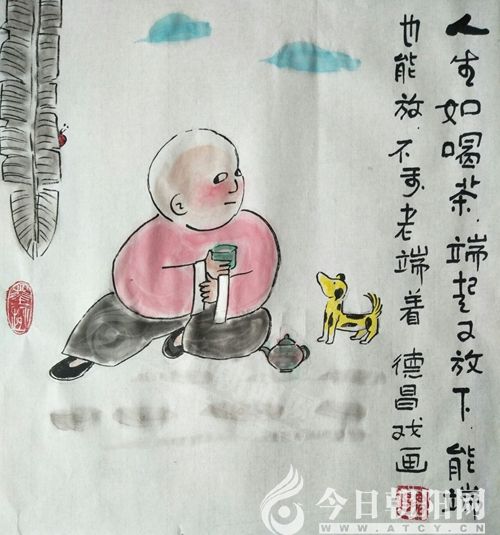 人生如喝茶.端起又放下.能端
也能放.不要老端着 德昌戏画
今日朝阳网
WWW.ATCY.CN